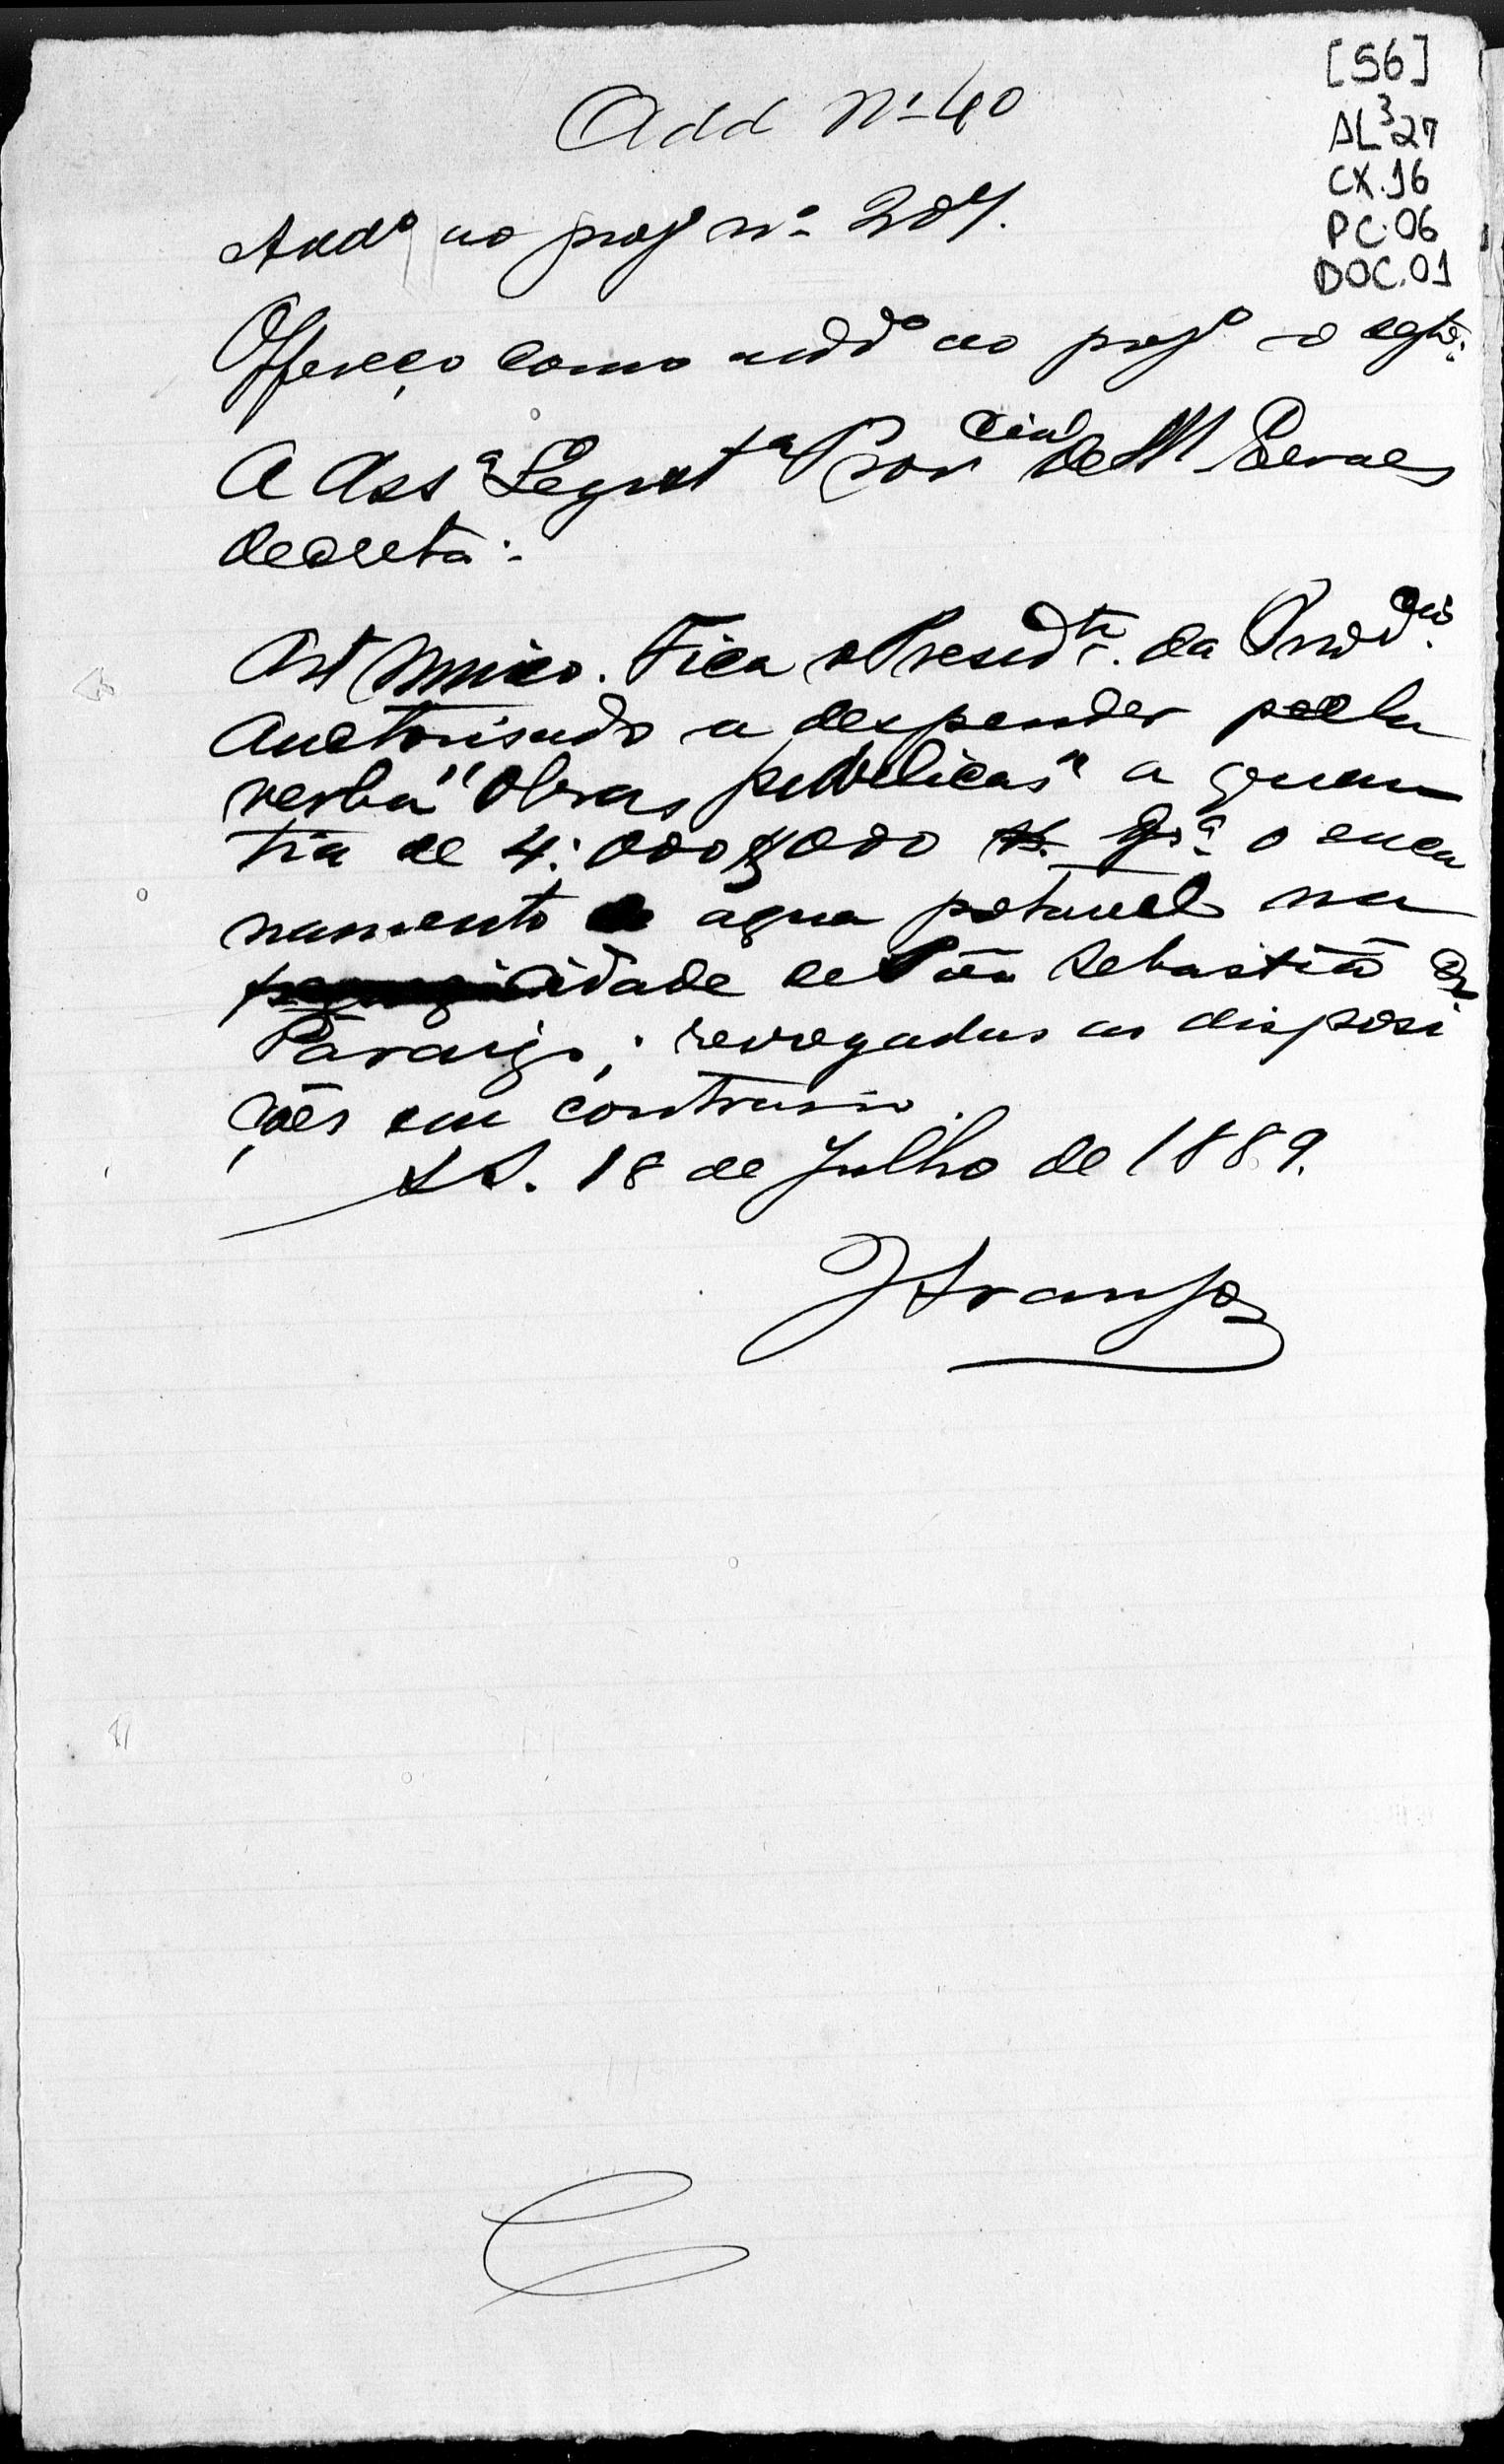 [56]
AL³27
CX.16
PC.06
DOC.01
Add Nº 40
Addº ao projº nº 207.
Offereço como addº ao projº o segte:
A Assª Legistª Provcial de M Geraes
decreta:
Art Unico. Fica o Presidte. da Provcia.
auctorisado a despender pela
verba "Obras publicas" a quan
tia de 4:000$000 pª o enca
namento de agua potavel na
cidade de São Sebastião do
Paraiso; revogadas as disposi
ções em contrario.
SS. 18 de Julho de 1889.
J Araujo